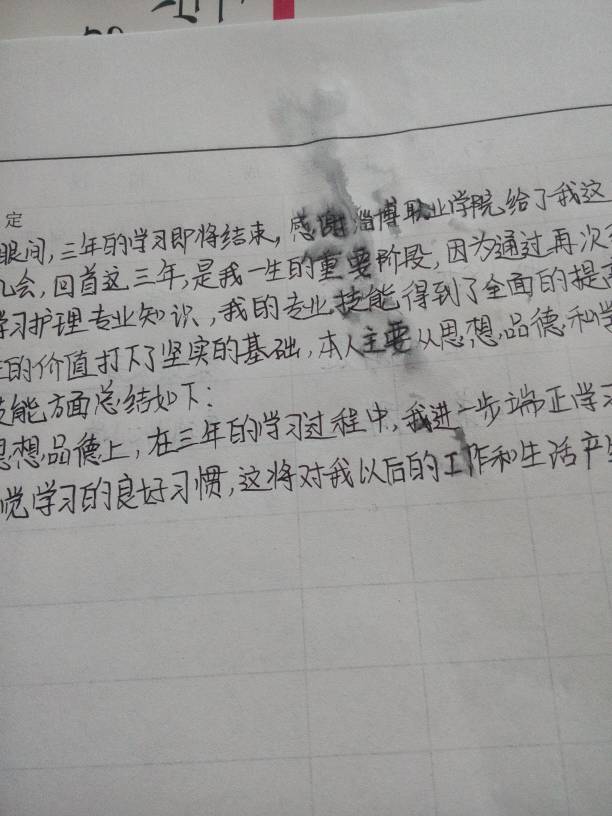 定
眼间,三年的学习即将结束,感谢淄博职业学院给了我这
机会,回首这三年,是我一生的重要阶段,因为通过再次
学习护理专业知识,我的专业技能得到了全面的提高
的价值打下了坚实的基础,本人主要从思想品德和学
技能方面总结如下:
思想品德上,在三年的学习过程中,我进一步端正学习
觉学习的良好习惯,这将对我以后的工作和生活产